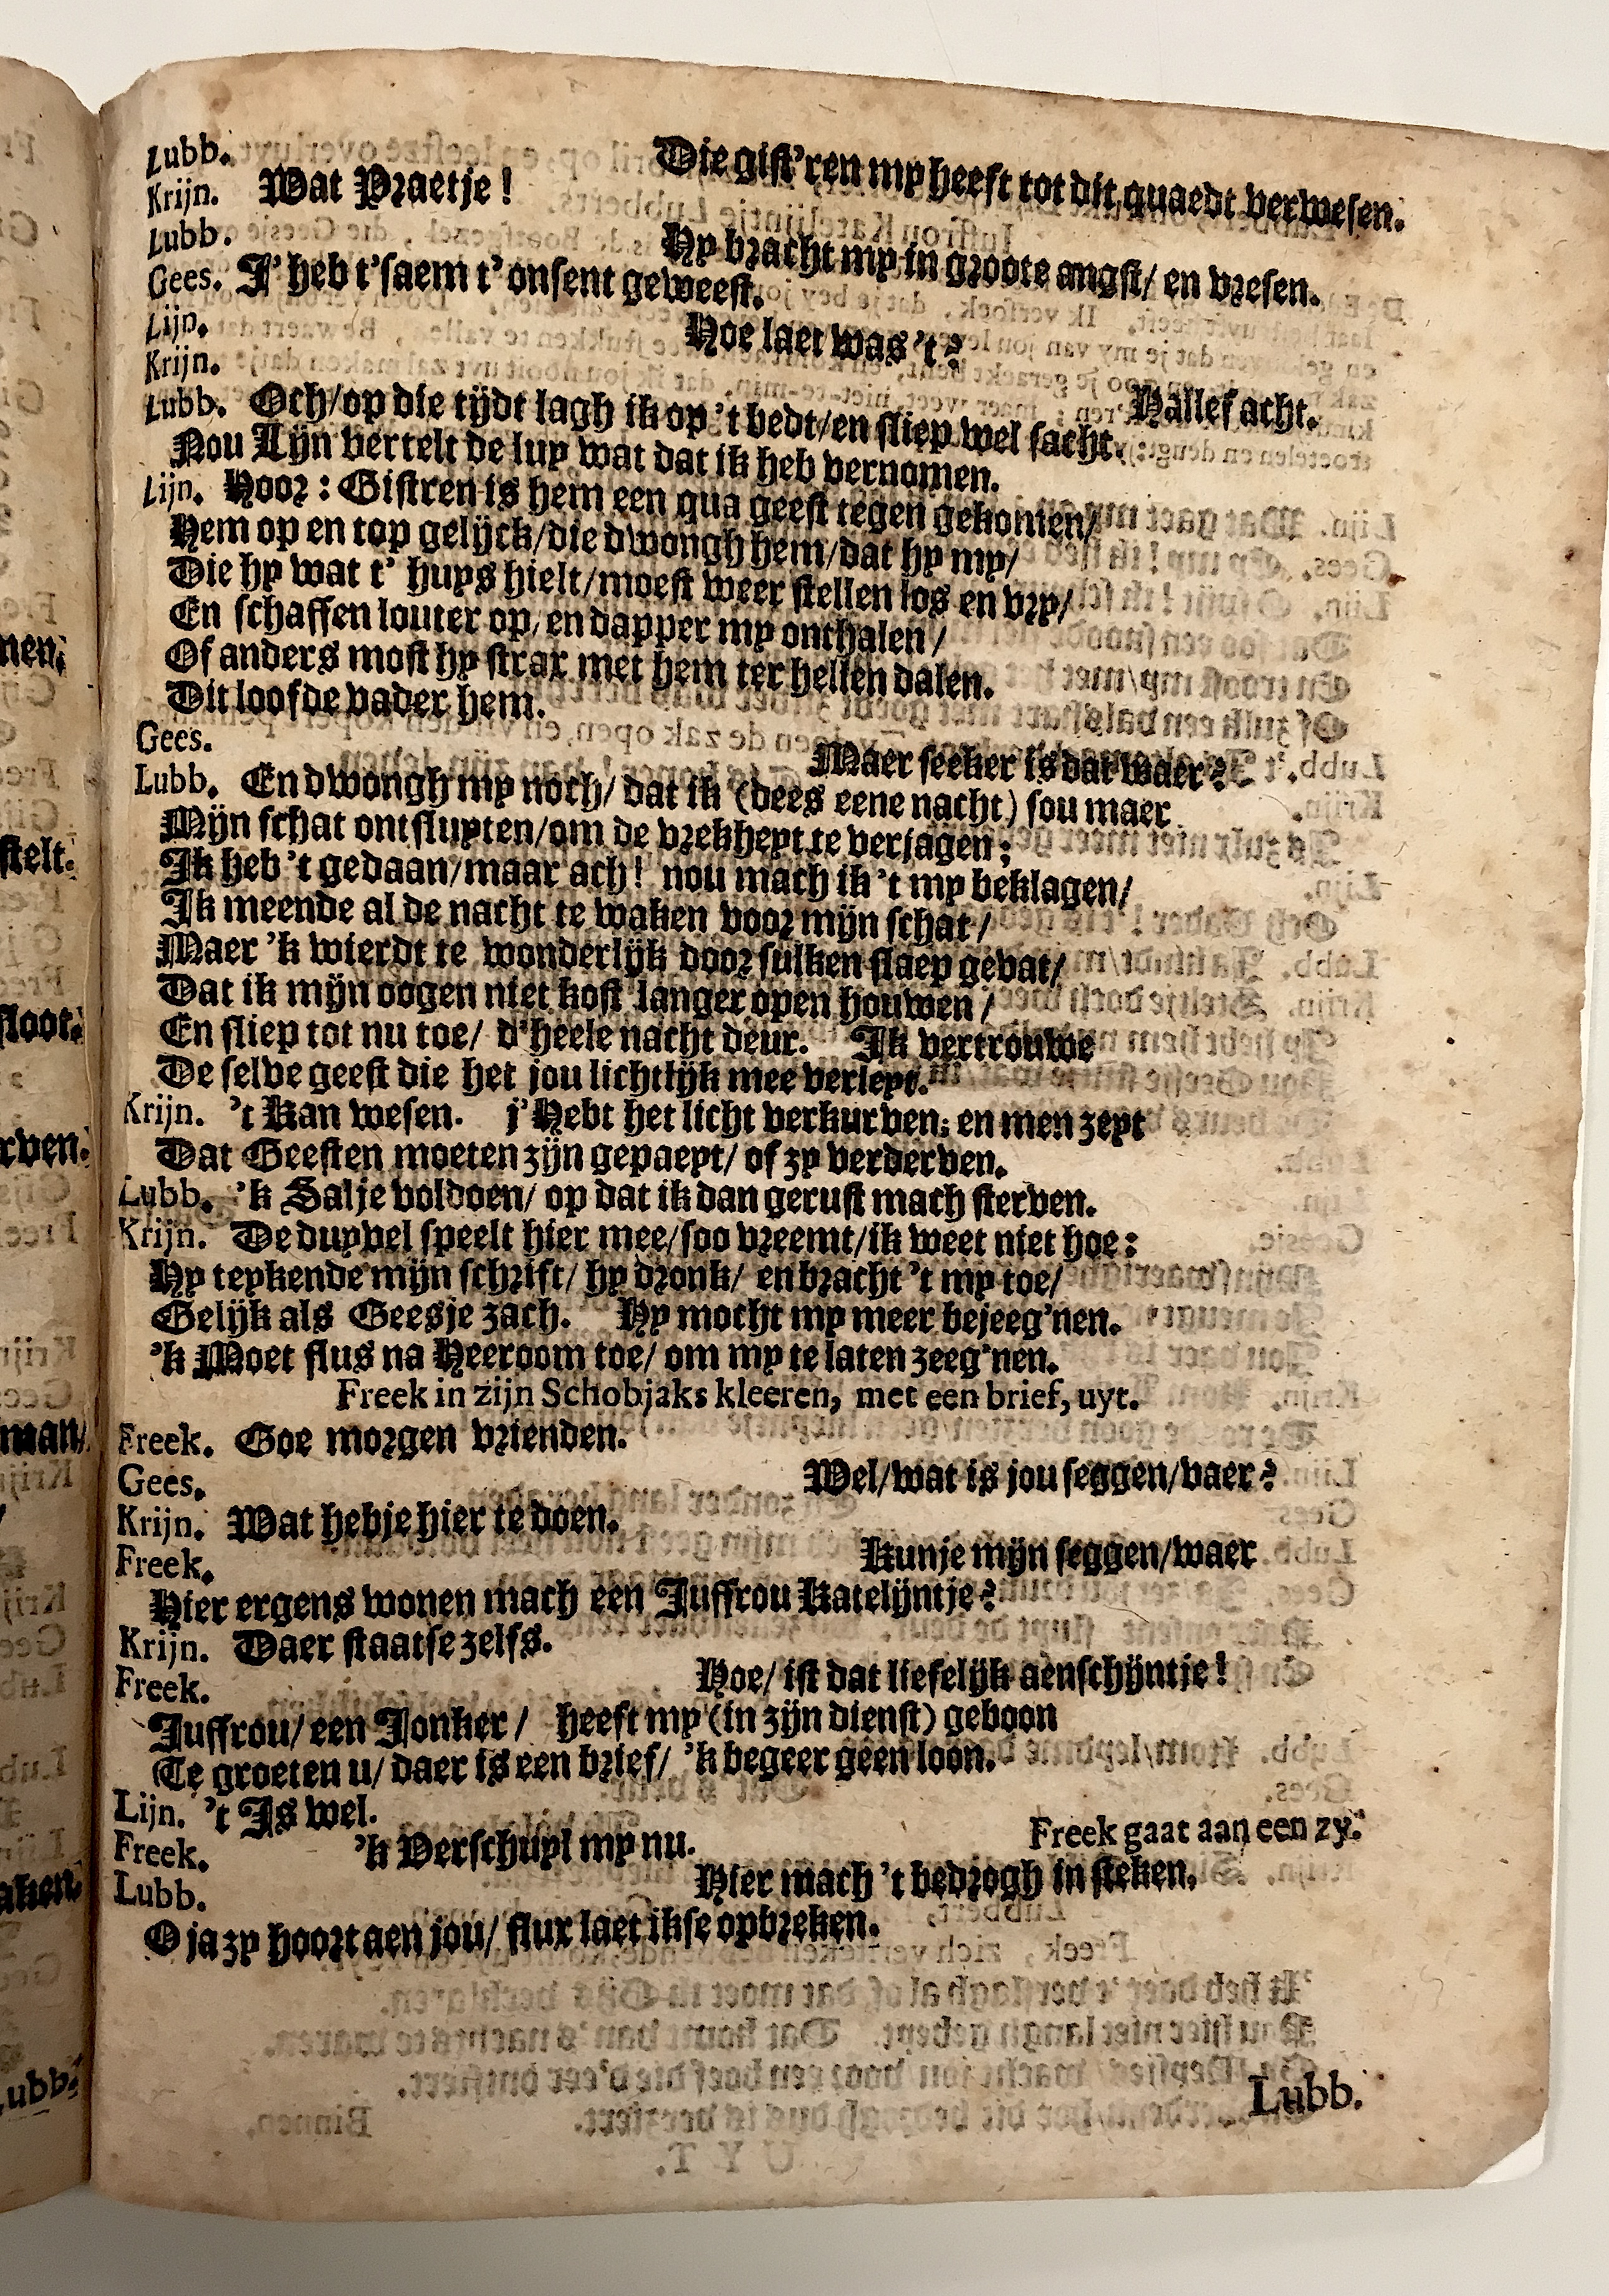 Lubb. Die gist'ren my heeft tot dit quaedt verwesen.
Krijn. Wat Praetje!
Lubb. Hy bracht my in groote angst/ en vresen.
Gees. J' heb t'saem t' onsent geweest.
Lijn. Hoe laet was 't?
Krijn. Hallef acht.
Lubb. Och/op die tijdt lagh ik op 't bedt/en sliep wel sacht.
Nou Lijn vertelt de luy wat dat ik heb vernomen.
Lijn. Hoor: Gistren is hem een qua geest tegen gekomen/
Hem op en top gelijck/die dwongh hem/dat hy my/
Die hy wat t' huys hielt/moest weer stellen los en vry/
En schaffen louter op/en dapper my onthalen/
Of anders most hy strax met hem ter hellen dalen.
Dit loofde vader hem.
Gees. Maer seeker is dat waer?
Lubb. En dwongh my noch/ dat ik (dees eene nacht) sou maer
Mijn schat ontsluyten/om de vrekheyt te verjagen;
Ik heb 't gedaan/maar ach! nou mach ik 't my beklagen/
Ik meende al de nacht te waken voor mijn schat/
Maer 'k wierdt te wonderlijk door sulken slaep gevat/
Dat ik mijn oogen niet kost langer open houwen/
En sliep tot nu toe/ d'heele nacht deur. Ik vertrouwe
De selve geest die het jou lichtlijk mee verleyt.
Krijn. 't Kan wesen. j'Hebt het licht verkurven: en men zeyt
Dat Geesten moeten zijn gepaeyt/ of zy verderven.
Lubb. 'k Sal je voldoen/ op dat ik dan gerust mach sterven.
Krijn. De duyvel speelt hier mee/soo vreemt/ik weet niet hoe:
Hy teykende mijn schrift/ hy dronk/ en bracht 't my toe/
Gelijk als Geesje zach. Hy mocht my meer bejeeg'nen.
'k Moet flus na Heeroom toe/ om my te laten zeeg'nen.
Freek in zijn Schobjaks kleeren, met een brief, uyt.
Freek. Goe morgen vrienden.
Gees. Wel/wat is jou seggen/vaer?
Krijn. Wat hebje hier te doen.
Freek. Kunje mijn seggen/waer
Hier ergens wonen mach een Juffrou Katelijntje?
Krijn. Daer staatse zelfs.
Freek. Hoe/ ist dat liefelijk aenschijntje!
Juffrou/ een Jonker/ heeft my (in zijn dienst) geboon
Te groeten u/ daer is een brief/ 'k begeer geen loon.
Lijn. 't Is wel.
Freek gaat aan een zy.
Freek. 'k Verschuyl my nu.
Lubb. Hier mach 't bedrogh in steken,
O ja zy hoort aen jou/ flux laet ikse opbreken.
Lubb.